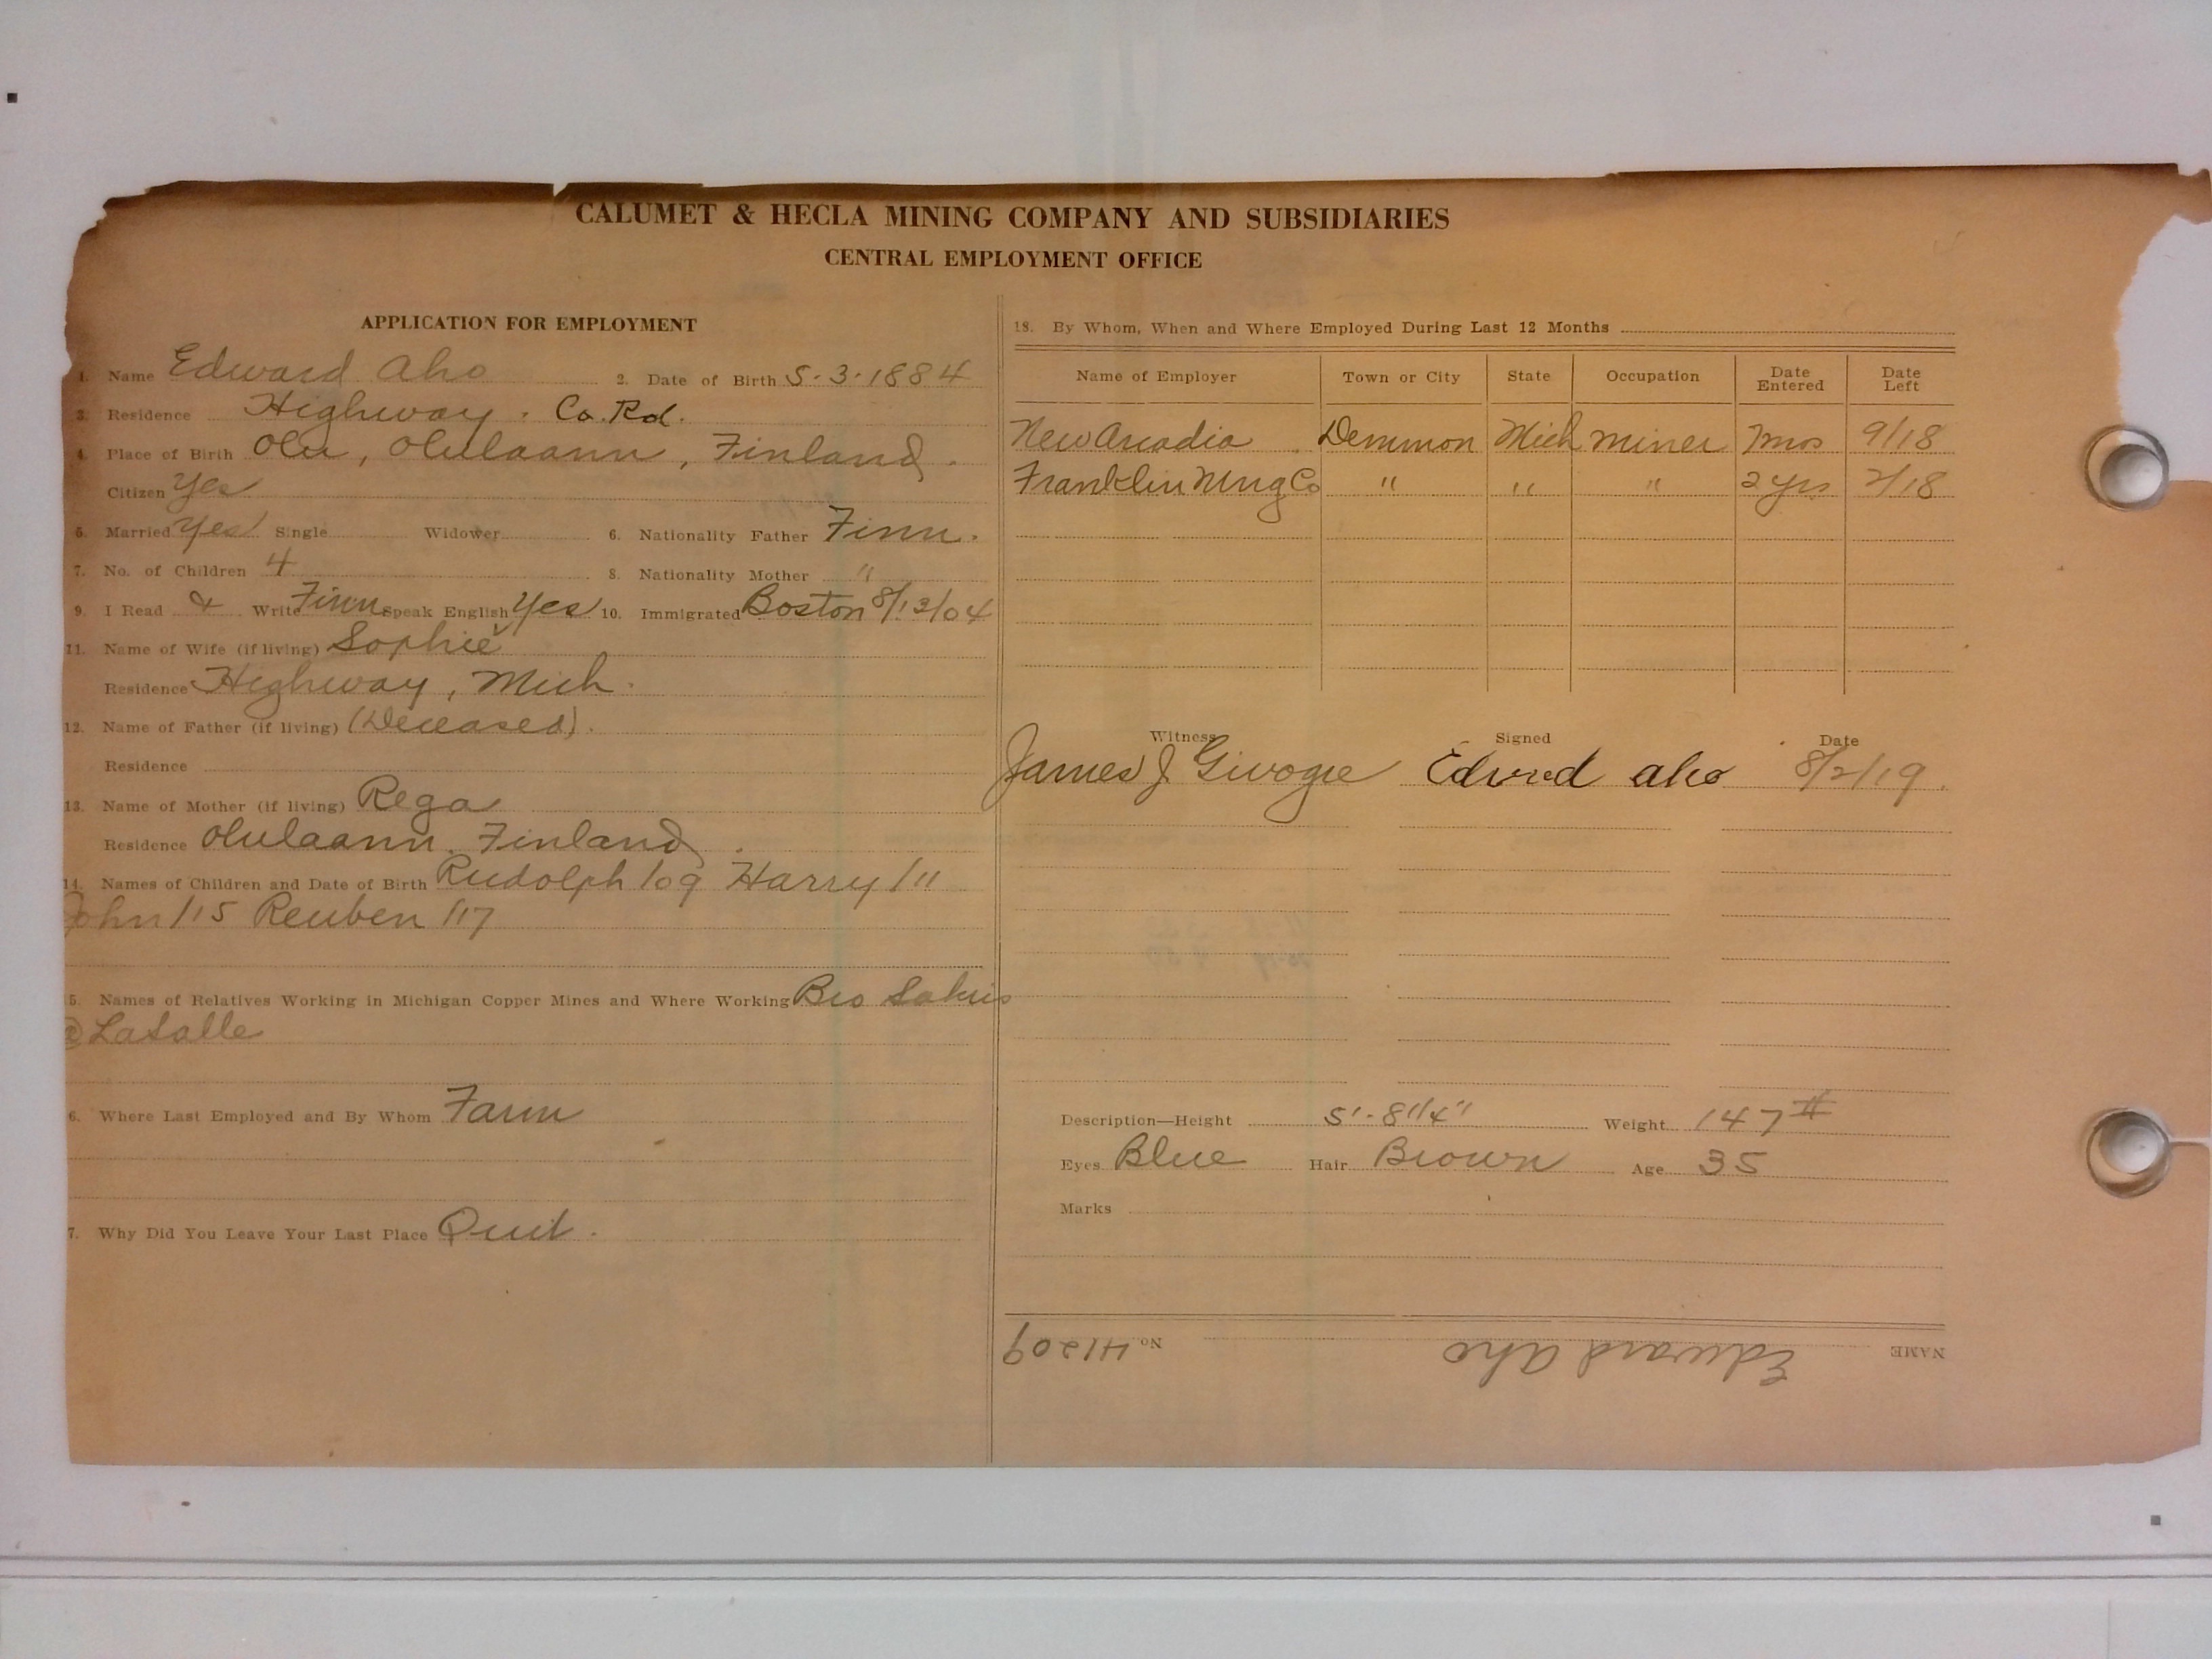 CALUMET & HECLA MINING COMPANY AND SUBSIDIARIES
CENTRAL EMPLOYMENT OFFICE
APPLICATION FOR EMPLOYMENT
1. Name Edward Aho 2. Date of Birth 5-3-1884
3. Residence Highway. Co. Rd.
4. Place of Birth Olu, Olulaann, Finland.
Citizen Yes
5. Married Yes Single Widower 6. Nationality Father Finn.
7. No. of Children 4 8. Nationality Mother "
9. I Read & Write Finn Speak English Yes 10. Immigrated Boston 8/13/04
11. Name of Wife (if living) Sophie
Residence Highway, Mich.
12. Name of Father (if living) (Deceased).
Residence
13. Name of Mother (if living) Rega
Residence Olulaann, Finland.
14. Names of Children and Date of Birth Rudolph /09 Harry /11
John /15 Reuben /17
5. Names of Relatives Working in Michigan Copper Mines and Where Working Bro Sakris
@ LaSalle
6. Where Last Employed and By Whom Farm
7. Why Did You Leave Your Last Place Quit.
18. By Whom, When and Where Employed During Last 12 Months
Name of Employer Town or City State Occupation Date Entered Date Left
New Arcadia Demmon Mich Miner 7mos 9/18
Franklin Mng Co " " " 2 yrs 2/18
Witness Signed Date
James J. Edwrd aho 8/2/19.
Description—Height 5'-8 1/4" Weight 147 #
Eyes Blue Hair Brown Age 35
Marks
NAME Edward Aho No 41209